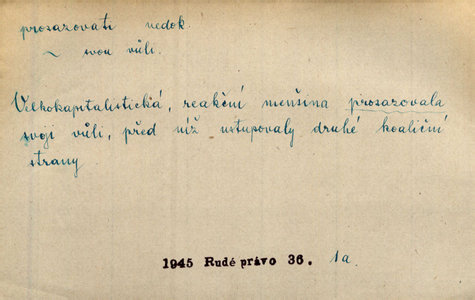 prosazovati nedok.
~ svou vůli.
Velkokapitalistická, reakční menšina prosazovala
svoji vůli, před níž ustupovaly druhé koaliční
strany
1945 Rudé právo 36. 1a.